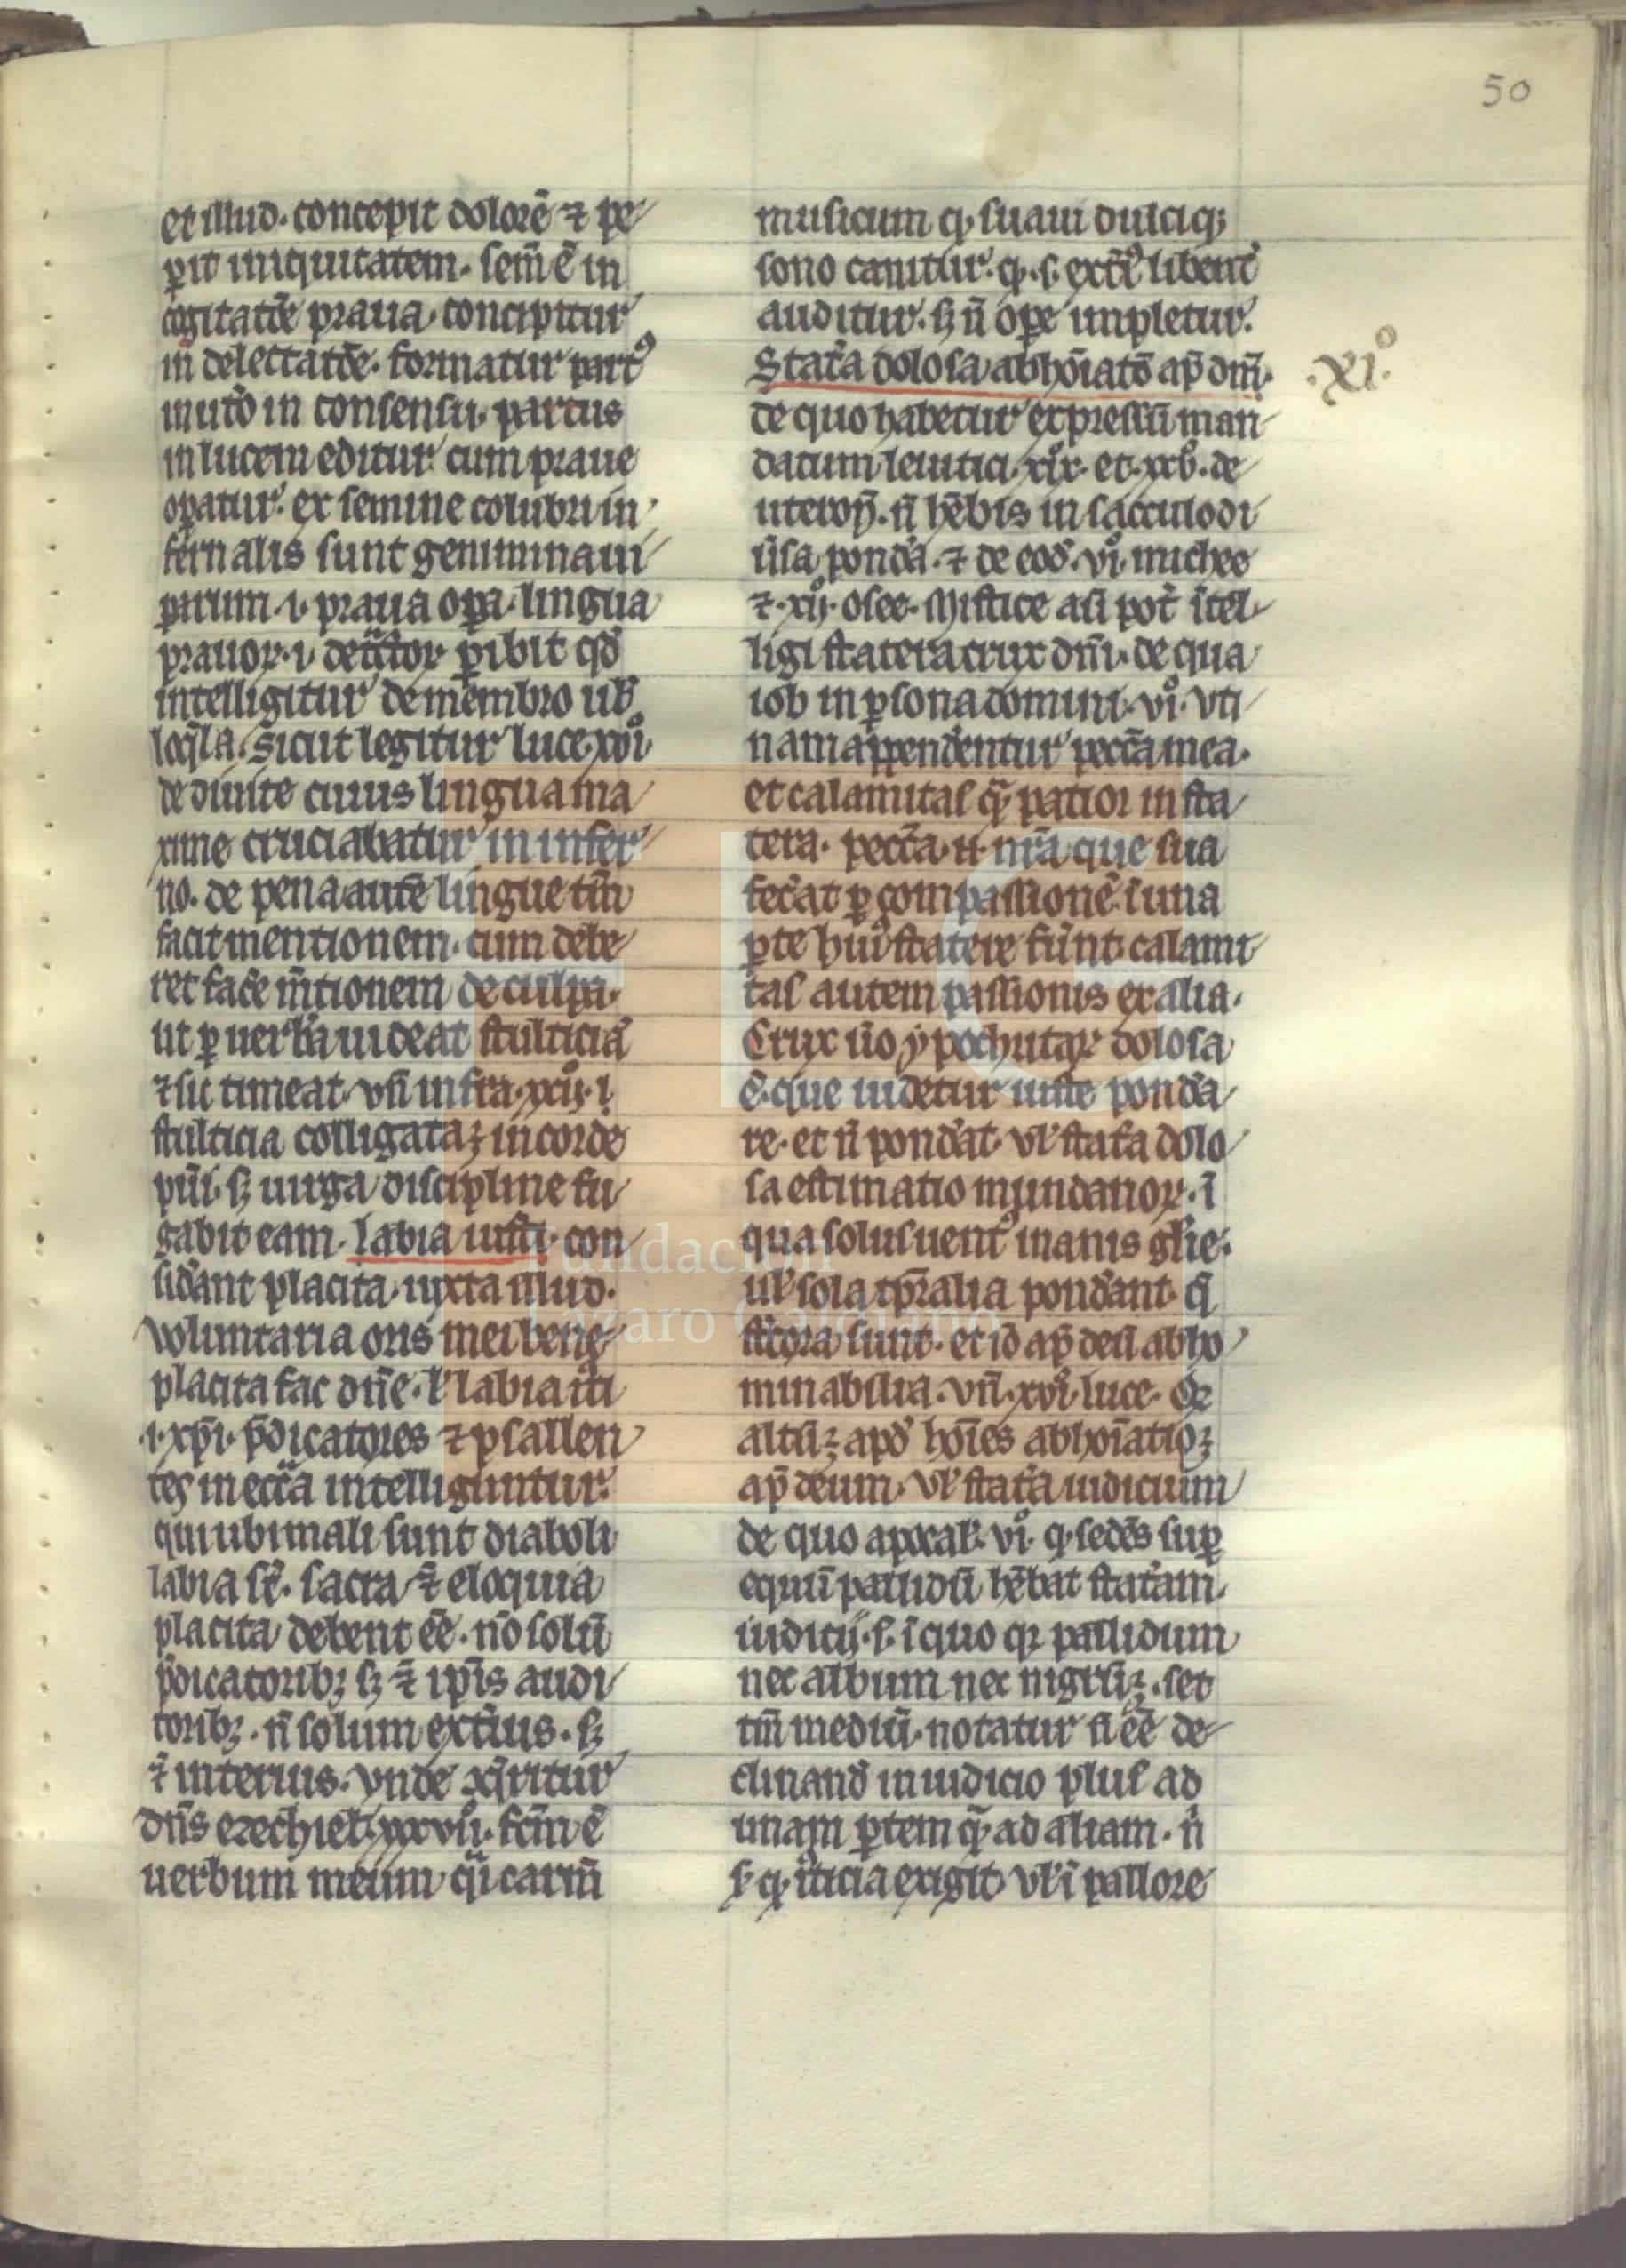 50
et illud. concepit dolorē ⁊ pe
ꝑit iniquitatem. sem̄ ē in
cogitatōe praua. concipitur
in delectatōe. formatur partꝰ
in consensu. partus
in lucem editur. cum praue
oꝑatur. ex semine colubri in
fernalis sunt genimina ui
perum. i. praua oꝑa. lingua
prauoꝝ. i. ꝑibit qd̄
intelligitur de membro ubi
loq̄la. Sicut legitur luce. xvi
de diuite cuius lingua ma
xime cruciabatur in infer
no. de pena autē lingue tm̄
facit mentionem. cum debe
ret facē mētionem de culpa.
ut ꝑ uerba uideat stulticiā
⁊ sic timeat. vn̄ infra. xxij. i.
stulticia colligata ꝫ in corde
pūi. sꝫ uirga discipline fu
gabit eam. labia iusti. con
sidant placita. iuxta illud.
Voluntaria oris mei bene
placita fac dn̄e. l' labia iti
.i. xp̄i. p̄dicatores ⁊ psallen
tes in ecc̄a intelliguntur.
qui ubi mali sunt diaboli
labia st̄. sacra ⁊̄ eloquia
placita debent ēē. nō solū
p̄dicatoribꝫ sꝫ ⁊̄ ip̄is audi
toribꝫ. n̄ solum ext̄ius. sꝫ
⁊̄ interius. Vnde
dn̄s ezechiel. xxxviii. fc̄m ē
uerbum meum q̄i carm̄
musicum q̄ suaui dulciqꝫ
sono canitur. q̄. s. ext̄iꝰ libent̄
auditur. sꝫ n̄ oꝑe impletur.
Stat̄a dolosa abhōiatō ap̄ dm̄.
.XI.º
de quo habetur expressū man
datum leuitici. xix. et. xxv. de
uteroñ. n̄ hēbis in sacculo di
ūsa pond̄a. ⁊ de eod̄. vi. michee
⁊. xij. osee. Mistice aū pot̄ ītel
ligi statera crux dn̄i. de qua
iob in ꝑsona domini. vi. Vti
nam appendentur peccā mea.
et calamitas q̄ patior in sta
tera. peccā. n. nr̄a que sua
fec̄at ꝑ compassionē. ī una
ꝑte huiꝰ statere fūnt. calami
tas autem passionis ex alia.
Crux ūo ypochritaꝝ dolosa
ē. que uidetur iuste pond̄a
re. et n̄ pond̄at. Vl' stat̄a dolo
sa estimatio mundanoꝝ. ī
qua solus uentꝰ inanis gl'ie.
ul' sola tꝑalia pond̄ant. q̄
sunt. et iō ap̄ deū abho
minabilia. Vn̄. xvi. luce. Qᷣ
altū ꝫ apd̄ hōies abhoīatio ꝫ
ap̄ deum. Vl' stat̄a iudicium
de quo apocal'. vi. q̄ sedēs suꝑ
equū pallidū hēbat stat̄am.
iudicij. s. ī quo qꝛ pallidum
nec album nec nigrū ꝫ. set
tm̄ mediū. notatur n̄ ēē de
clinand̄ in iudicio plus ad
unam ꝑtem q̄ ad aliam. n̄
s. q̄ iticia exigit. Vl' ī pallore